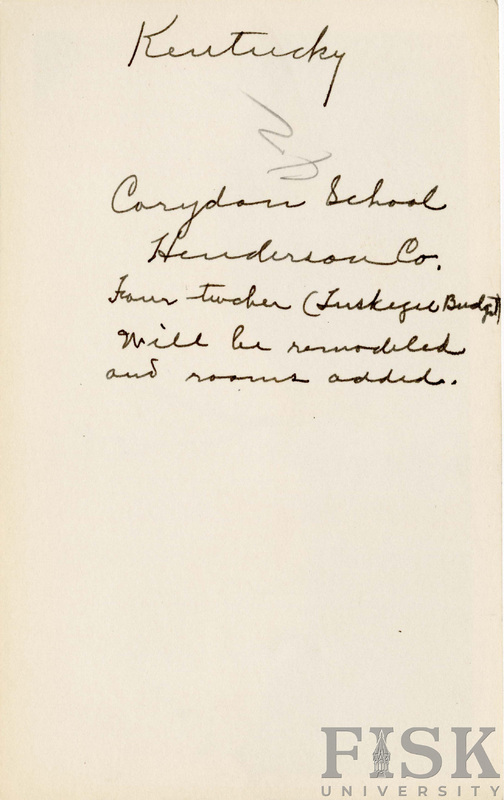 Kentucky
Corydon School
Henderson Co.
Four-twcher (Tuskegee Budget)
Will be remodeled
and rooms added.
FISK
UNIVERSITY